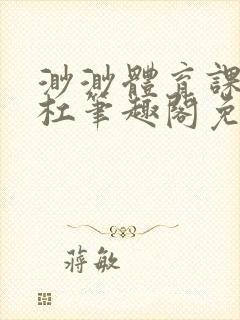 渺渺體育課
杜筆趣閣免
蔣敏